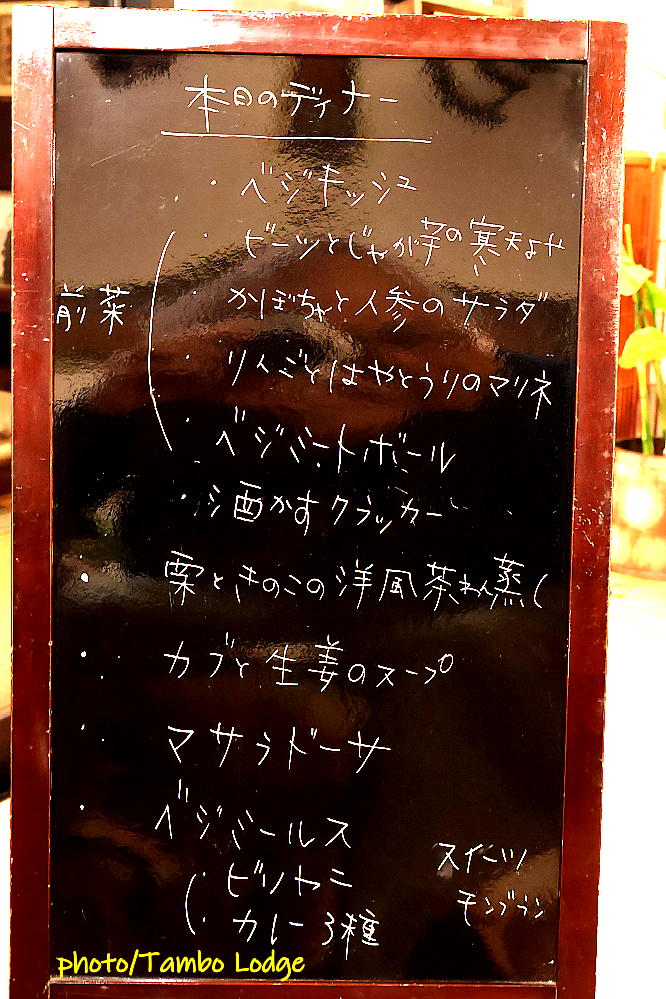 本日のディナー
・ベジキッシュ
・ビーツとじゃが芋の寒天よせ
前菜
・かぼちゃと人参のサラダ
・りんごとはやとうりのマリネ
・ベジミートボール
・酒かすクラッカー
・栗ときのこの洋風茶わん蒸し
・カブと生姜のスープ
・マサラドーサ
・ベジミールス
・ビリヤニ
・カレー3種
スイーツ
モンブラン
photo/Tambo Lodge